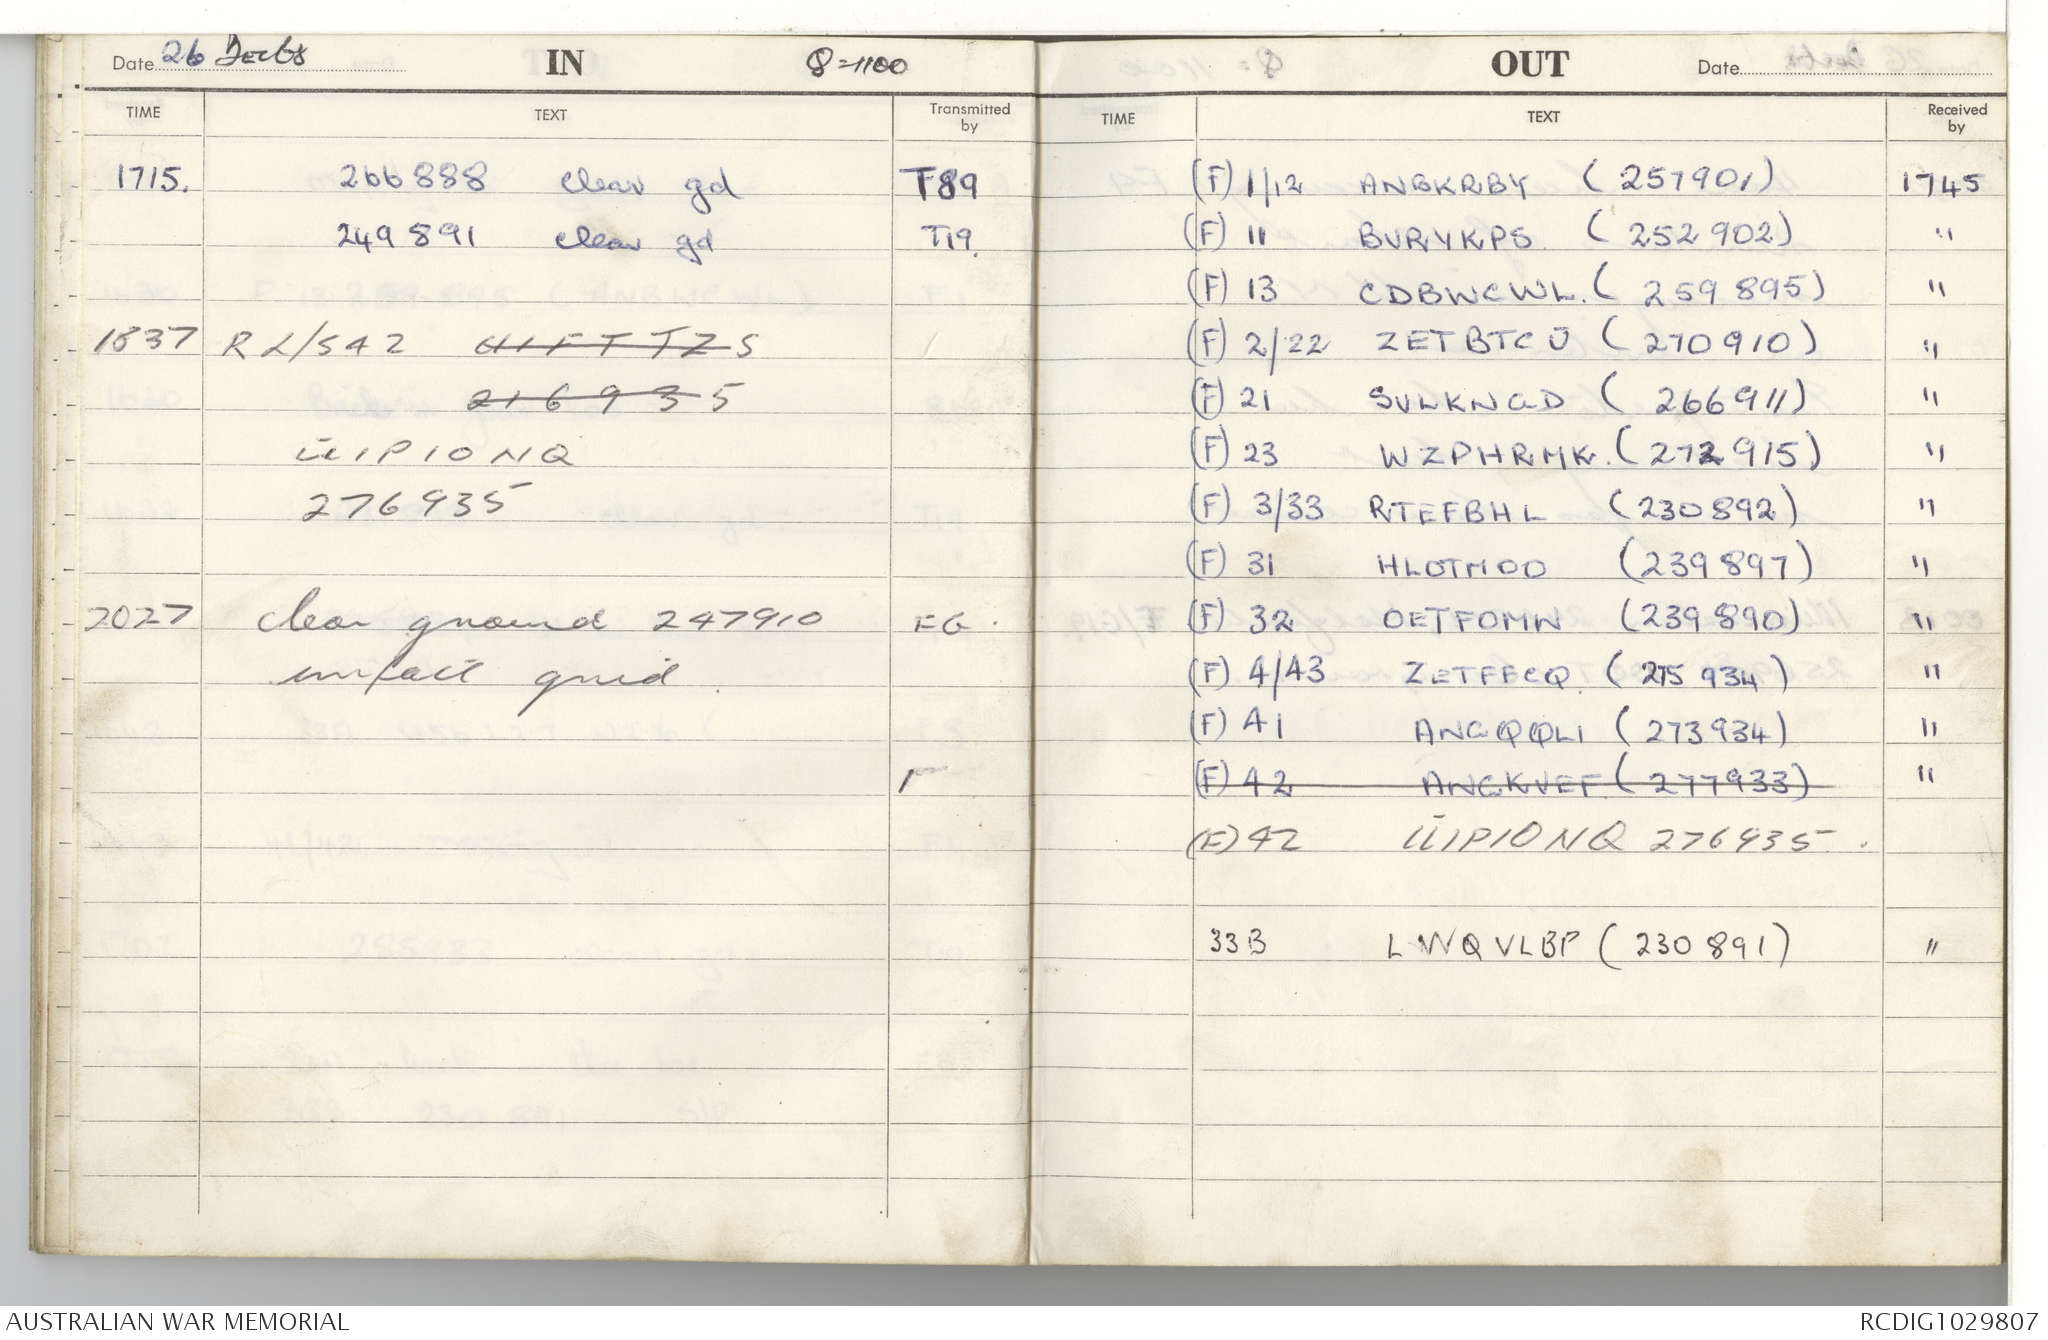 Date 26 Dec68 IN 8=1100
TIME TEXT Transmitted by
1715. 266888 clear gd T89
249891 clear gd T19.
1837 R2/S42 UIFTTZS
216935
UIIPIONQ
276935
2027 clear ground 247910 EG.
intact grid.
OUT Date
TIME TEXT Received by
(F) 1/12 ANGKRBY (257901) 1745
(F) 11 BVRYKPS (252902) "
(F) 13 CDBWCWL. (259895) "
(F) 2/22 ZETBTCU (270910) "
(F) 21 SVLKNGD (266911) "
(F) 23 WZPHRMK. (272915) "
(F) 3/33 RTEFBHL (230892) "
(F) 31 HLOTMOO (239897) "
(F) 32 OETFOMW (239890) "
(F) 4/43 ZETFFCQ (275934) "
(F) 41 ANGQQLI (273934) "
(F) 42 ANGKVEF. (277933) "
(F) 42 UIIPIONQ 276935.
33B LWQVLBP (230891) "
AUSTRALIAN WAR MEMORIAL RCDIG1029807